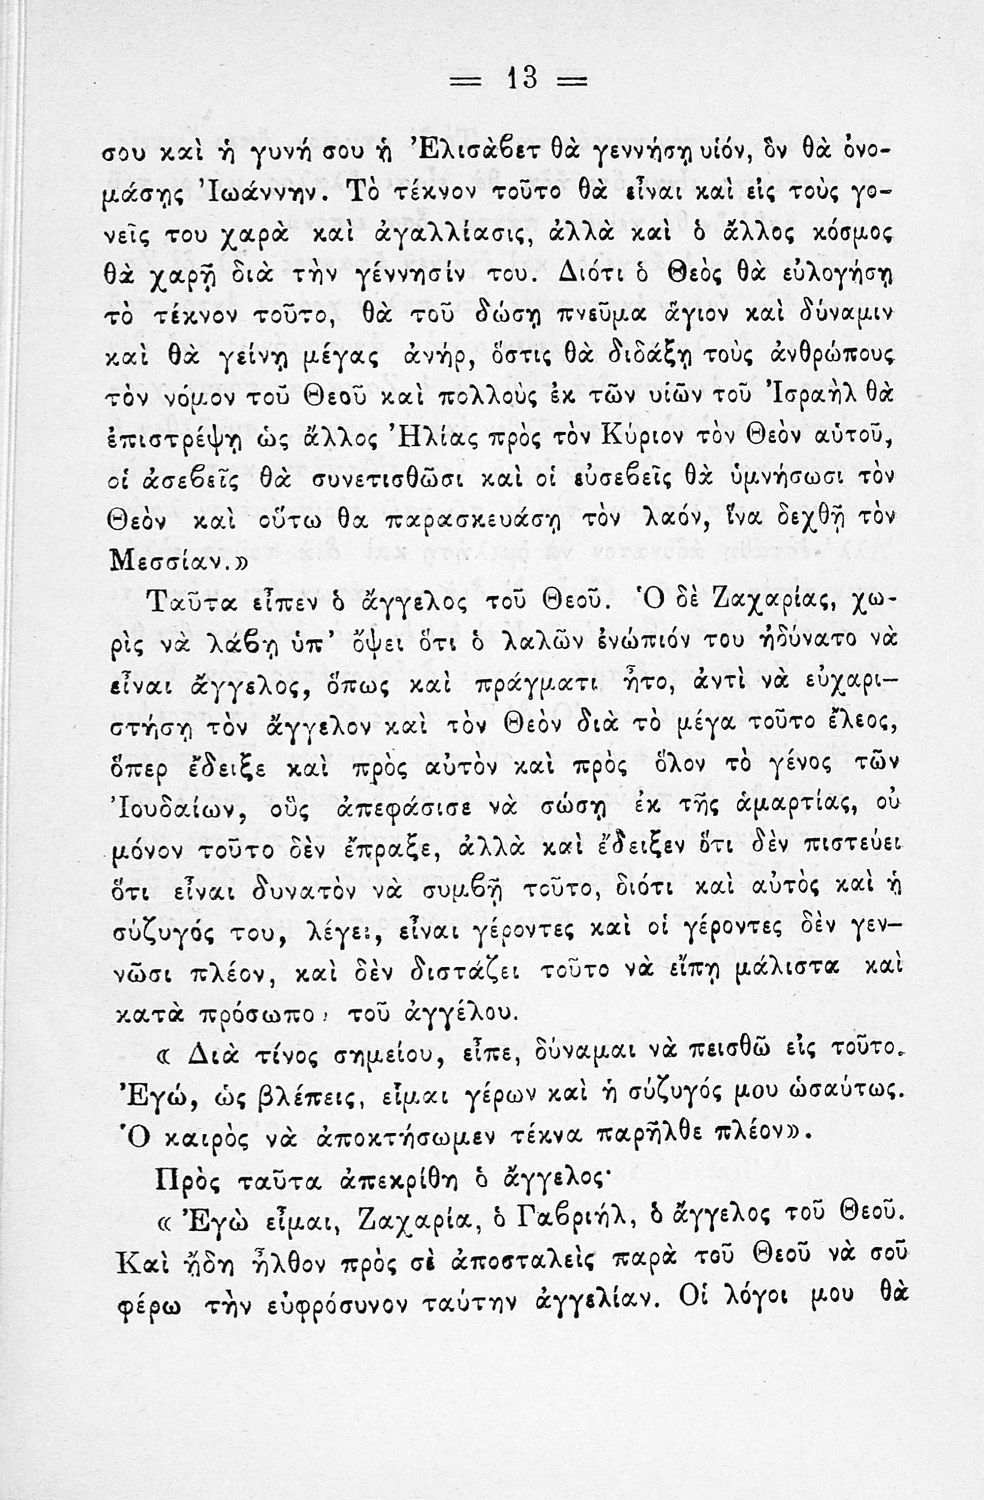 = 13 =
σου καὶ ἡ γυνή σου ἡ Ἐλισάβετ θὰ γεννήσῃ υἱόν, ὃν θὰ ὀνο-
μάσῃς Ἰωάννην. Τὸ τέκνον τοῦτο θὰ εἶναι καὶ εἰς τοὺς γο-
νεῖς του χαρὰ καὶ ἀγαλλίασις, ἀλλὰ καὶ ὁ ἄλλος κόσμος
θὰ χαρῇ διὰ τὴν γέννησίν του. Διότι ὁ Θεὸς θὰ εὐλογήσῃ
τὸ τέκνον τοῦτο, θὰ τοῦ δώσῃ πνεῦμα ἅγιον καὶ δύναμιν
καὶ θὰ γείνῃ μέγας ἀνήρ, ὅστις θὰ διδάξῃ τοὺς ἀνθρώπους
τὸν νόμον τοῦ Θεοῦ καὶ πολλοὺς ἐκ τῶν υἱῶν τοῦ Ἰσραὴλ θὰ
ἐπιστρέψῃ ὡς ἄλλος Ἠλίας πρὸς τὸν Κύριον τὸν Θεὸν αὑτοῦ,
οἱ ἀσεβεῖς θὰ συνετισθῶσι καὶ οἱ εὐσεβεῖς θὰ ὑμνήσωσι τὸν
Θεὸν καὶ οὕτω θα παρασκευάσῃ τὸν λαόν, ἵνα δεχθῇ τὸν
Μεσσίαν.»
Ταῦτα εἶπεν ὁ ἄγγελος τοῦ Θεοῦ. Ὁ δὲ Ζαχαρίας, χω-
ρὶς νὰ λάβῃ ὑπ' ὄψει ὅτι ὁ λαλῶν ἐνώπιόν του ἠδύνατο νὰ
εἶναι ἄγγελος, ὅπως καὶ πράγματι ἦτο, ἀντὶ νὰ εὐχαρι-
στήσῃ τὸν ἄγγελον καὶ τὸν Θεὸν διὰ τὸ μέγα τοῦτο ἔλεος,
ὅπερ ἔδειξε καὶ πρὸς αὐτὸν καὶ πρὸς ὅλον τὸ γένος τῶν
Ἰουδαίων, οὓς ἀπεφάσισε νὰ σώσῃ ἐκ τῆς ἁμαρτίας, οὐ
μόνον τοῦτο δὲν ἔπραξε, ἀλλὰ καὶ ἔδειξεν ὅτι δὲν πιστεύει
ὅτι εἶναι δυνατὸν νὰ συμβῇ τοῦτο, διότι καὶ αὐτὸς καὶ ἡ
σύζυγός του, λέγει, εἶναι γέροντες καὶ οἱ γέροντες δὲν γεν-
νῶσι πλέον, καὶ δὲν διστάζει τοῦτο νὰ εἴπῃ μάλιστα καὶ
κατὰ πρόσωπον τοῦ ἀγγέλου.
« Διὰ τίνος σημείου, εἶπε, δύναμαι νὰ πεισθῶ εἰς τοῦτο.
Ἐγώ, ὡς βλέπεις, εἶμαι γέρων καὶ ἡ σύζυγός μου ὡσαύτως.
Ὁ καιρὸς νὰ ἀποκτήσωμεν τέκνα παρῆλθε πλέον».
Πρὸς ταῦτα ἀπεκρίθη ὁ ἄγγελος·
« Ἐγὼ εἶμαι, Ζαχαρία, ὁ Γαβριήλ, ὁ ἄγγελος τοῦ Θεοῦ.
Καὶ ἤδη ἦλθον πρὸς σὲ ἀποσταλεὶς παρὰ τοῦ Θεοῦ νὰ σοῦ
φέρω τὴν εὐφρόσυνον ταύτην ἀγγελίαν. Οἱ λόγοι μου θὰ